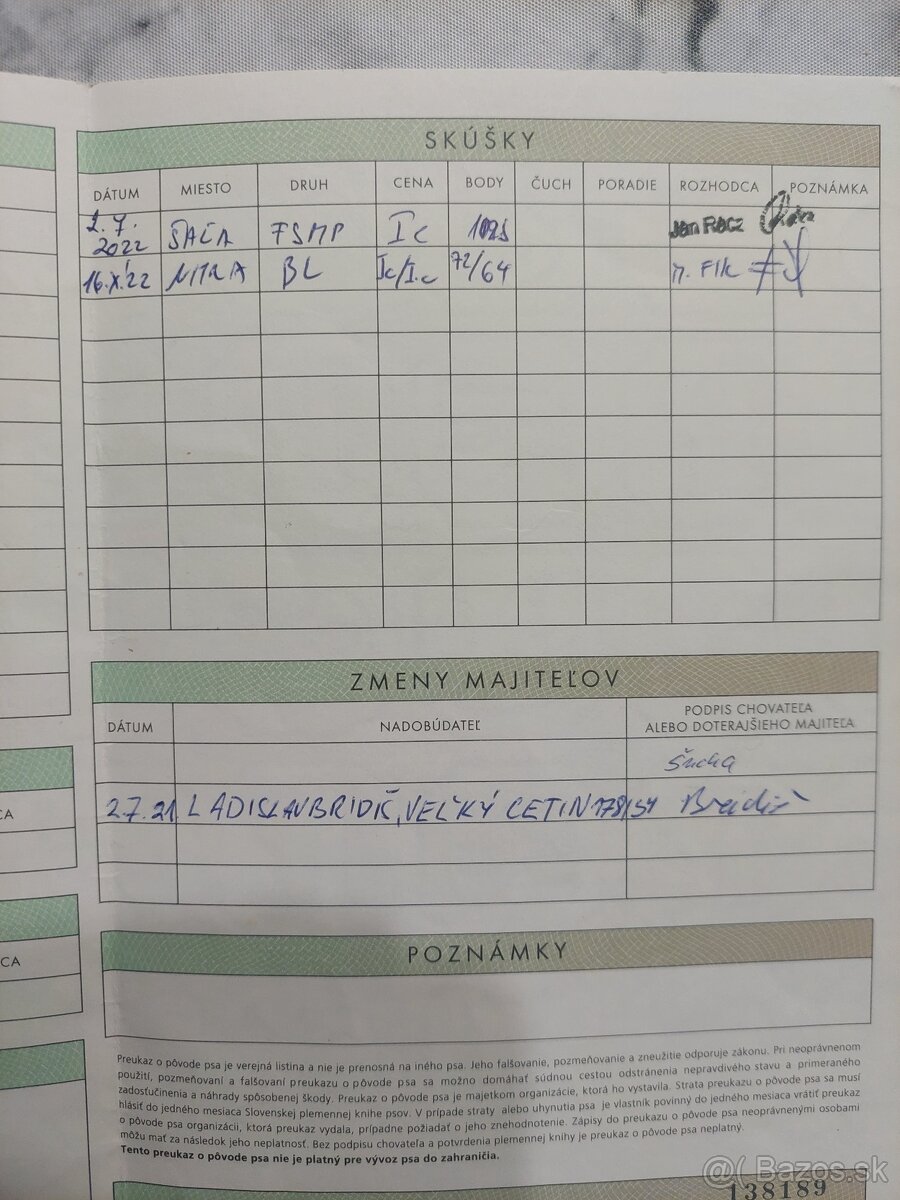 SKÚŠKY
DÁTUM MIESTO DRUH CENA BODY ČUCH PORADIE ROZHODCA POZNÁMKA
2.7. 2022 ŠAĽA FSMP Ic Ján Rácz
16.X.'22 NITRA BL Ic/I.c 72/64
ZMENY MAJITEĽOV
DÁTUM NADOBÚDATEĽ PODPIS CHOVATEĽA
ALEBO DOTERAJŠIEHO MAJITEĽA
2.7.21 LADISLAV BRIDIČ, VEĽKÝ CETIN
POZNÁMKY
CA
CA
Preukaz o pôvode psa je verejná listina a nie je prenosná na iného psa. Jeho falšovanie, pozmeňovanie a zneužitie odporuje zákonu. Pri neoprávnenom
použití, pozmeňovaní a falšovaní preukazu o pôvode psa sa možno domáhať súdnou cestou odstránenia nepravdivého stavu a primeraného
zadosťučinenia a náhrady spôsobenej škody. Preukaz o pôvode psa je majetkom organizácie, ktorá ho vystavila. Strata preukazu o pôvode psa sa musí
hlásiť do jedného mesiaca Slovenskej plemennej knihe psov. V prípade straty alebo uhynutia psa je vlastník povinný do jedného mesiaca vrátiť preukaz
o pôvode psa organizácii, ktorá preukaz vydala, prípadne požiadať o jeho znehodnotenie. Zápisy do preukazu o pôvode psa neoprávnenými osobami
môžu mať za následok jeho neplatnosť. Bez podpisu chovateľa a potvrdenia plemennej knihy je preukaz o pôvode psa neplatný.
Tento preukaz o pôvode psa nie je platný pre vývoz psa do zahraničia.
138189
Bazos.sk